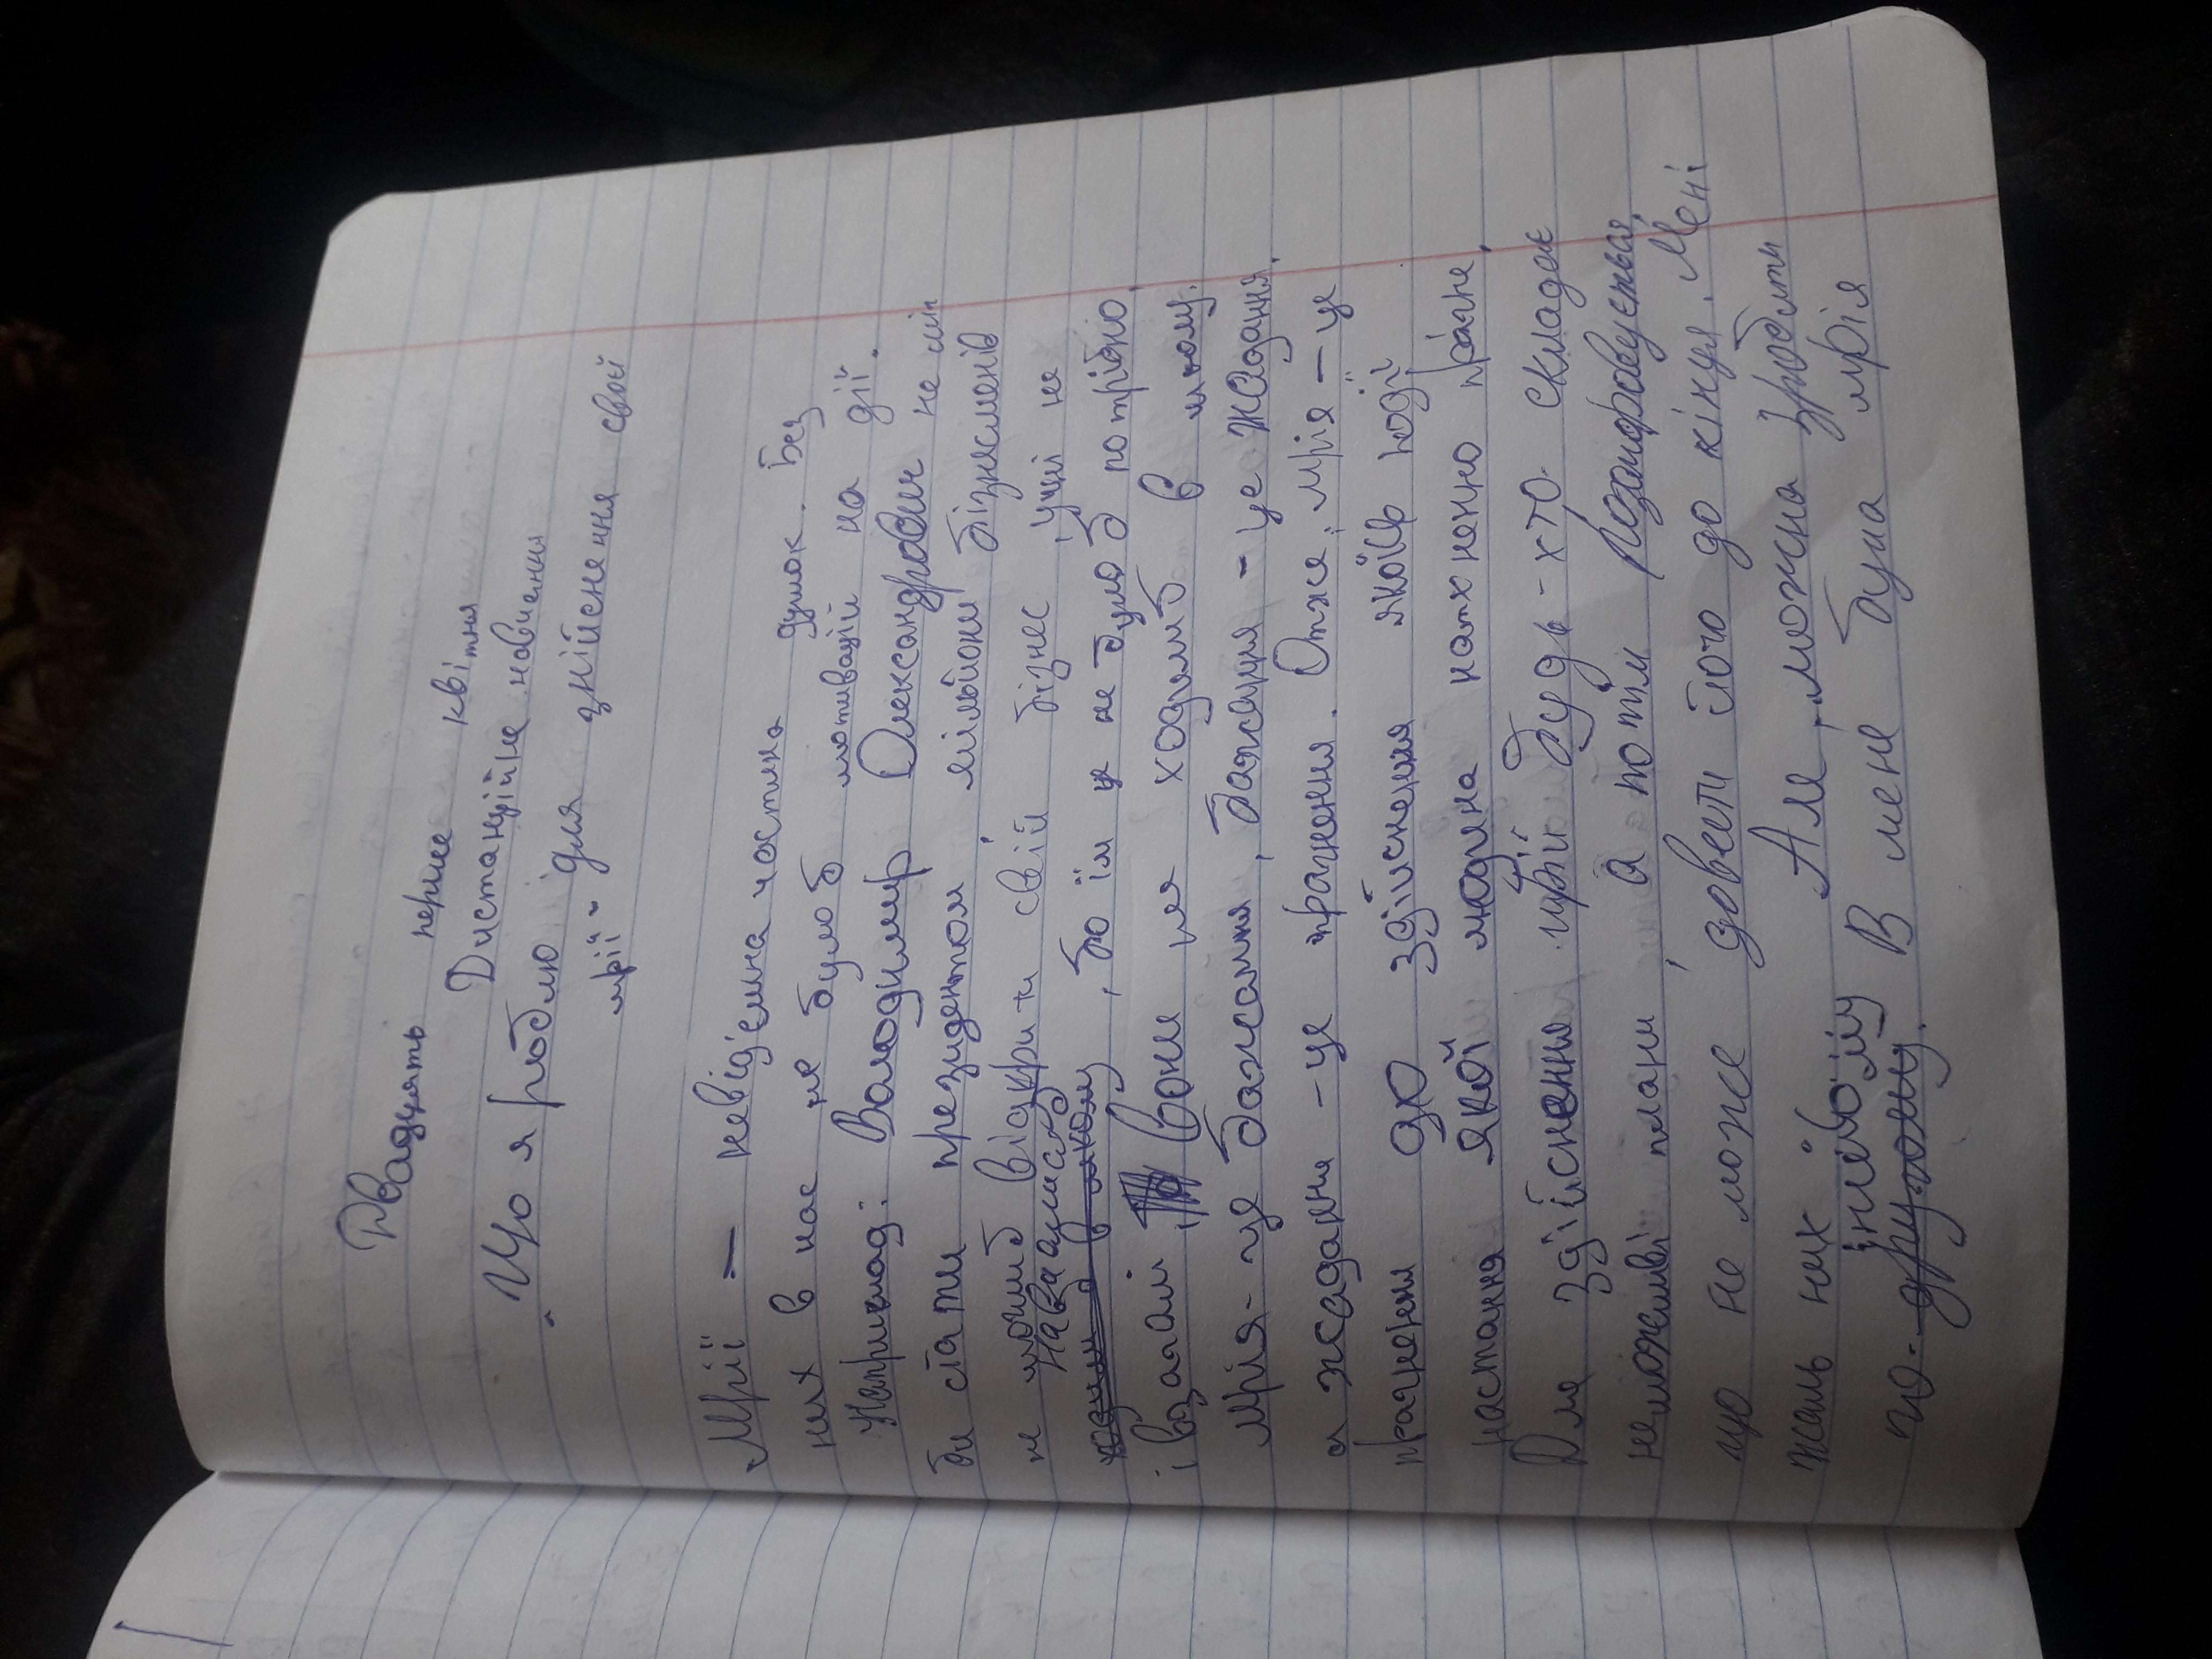 Двадцять перше квітня
Дистанційне навчання
Що я роблю для знійснення своїй
мрії.
Мрії — невід'ємна частина думок. Без
них в нас не булоб мотивацій на дії.
Наприклад: Володимир Олександрович не міг
би стати президентом, мільйони бізнесменів
не моглиб відкрити свій бізнес і учні не
навчалисяб, бо їм це не булоб потрібно,
і взагалі Вони не ходилиб в школу.
Мрія - це бажання, бажання - це жадання,
а жадання - це прагнення. Отже, мрія - це
прагнення до здійснення якоїсь події
настання якої людина натхненно прагне.
Для здійснення мрій будь-хто складає
неможливі плани, а потім розчаровується,
що не може довести його до кінця. Мені
жаль них. Але, можна зробити
по-іншому. В мене була мрія